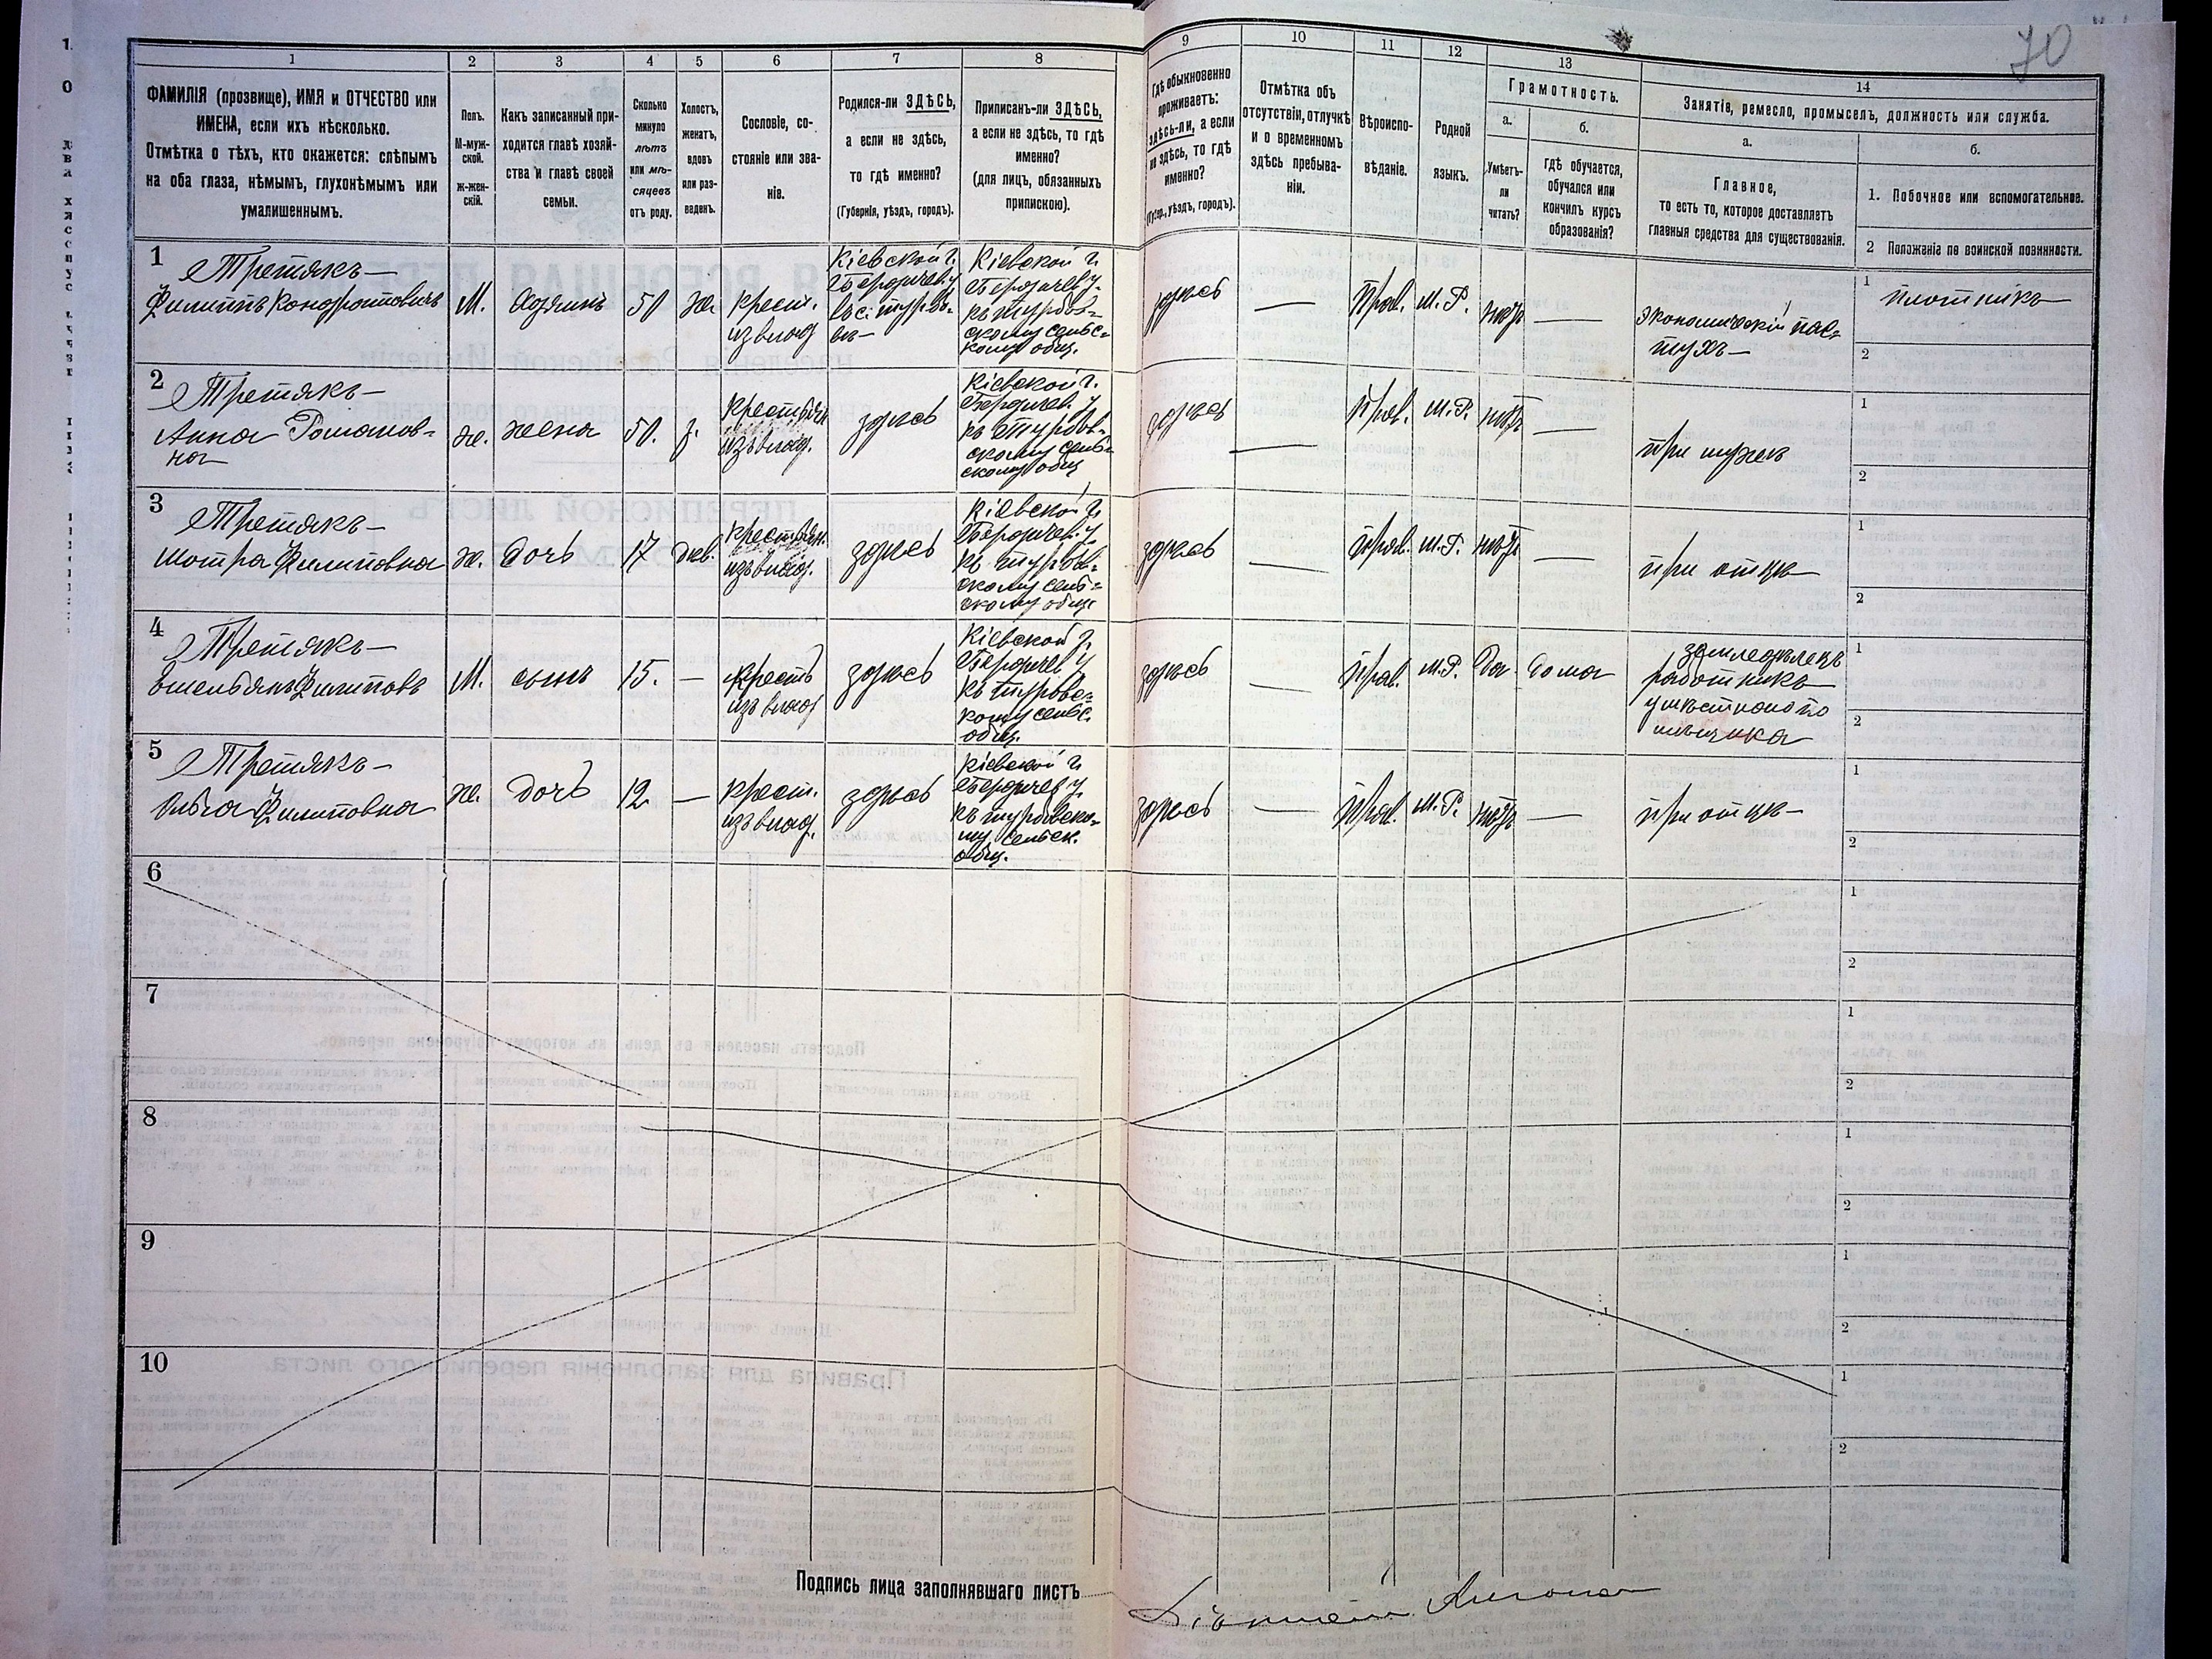 70
1
2
3
4
5
6
7
8
9
10
11
12
13
14
ФАМИЛІЯ (прозвище), ИМЯ и ОТЧЕСТВО или
ИМЕНА, если ихъ нѣсколько.
Отмѣтка о тѣхъ, кто окажется: слѣпымъ
на оба глаза, нѣмымъ, глухонѣмымъ или
умалишеннымъ.
Полъ.
М-муж-
ской.
Ж-жен-
скій.
Какъ записанный при-
ходится главѣ хозяй-
ства и главѣ своей
семьи.
Сколько
минуло
лѣтъ
или мѣ-
сяцевъ
отъ роду.
Холостъ,
женатъ,
вдовъ
или раз-
веденъ.
Сословіе, со-
стояніе или зва-
ніе.
Родился-ли ЗДѢСЬ,
а если не здѣсь,
то гдѣ именно?
(Губернія, уѣздъ, городъ).
Приписанъ-ли ЗДѢСЬ,
а если не здѣсь, то гдѣ
именно?
(для лицъ, обязанныхъ
припискою).
Гдѣ обыкновенно
проживаетъ:
здѣсь-ли, а если
не здѣсь, то гдѣ
именно?
(Губер., уѣздъ, городъ).
Отмѣтка объ
отсутствіи, отлучкѣ
и о временномъ
здѣсь пребыва-
ніи.
Вѣроиспо-
вѣданіе.
Родной
языкъ.
Грамотность.
а.
Умѣетъ-
ли
читать?
б.
гдѣ обучается,
обучался или
кончилъ курсъ
образованія?
Занятіе, ремесло, промыселъ, должность или служба.
а.
Главное,
то есть то, которое доставляетъ
главныя средства для существованія.
б.
1. Побочное или вспомогательное.
2 Положеніе по воинской повинности.
1
Третякъ
Филиппъ Кондратовичъ
М.
Хозяинъ
50
ж.
крест.
изъ влад
Кіевской г.
Бердичев. у.
въ с. Турбо-
въ
Кіевской г.
Бердичев у.
къ Турбов-
скому сельс-
кому общ.
здѣсь
—
Прав.
М. Р.
нѣтъ
—
экономическій пас-
тухъ
1
плотникъ
2
2
Третякъ
Анна Романов-
на
ж.
жена
50.
з.
Крестьян
изъ влад.
здѣсь
Кіевской г.
Бердичев. у
къ Турбов-
скому сель-
скому общ
здѣсь
—
Прав.
М. Р.
нѣтъ
—
при мужѣ
1
2
3
Третякъ
Мотра Филиповна
ж.
дочь
17
дѣв.
крестьян.
изъ влад.
здѣсь
Кіевской г.
Бердичев. у
къ Турбов-
скому сель-
скому общ
здѣсь
—
Прав.
М. Р.
нѣтъ
—
при отцѣ
1
2
4
Третякъ
Емельянъ Филиповъ
М.
сынъ
15.
—
кресть
изъ влад
здѣсь
Кіевской г.
Бердичев у
къ Турбовс-
кому сельс.
общ.
здѣсь
—
Прав.
М. Р.
да
дома
земледѣлецъ
работникъ
у мѣстного по
мѣщика
1
2
5
Третякъ
Ольга Филиповна
ж.
дочь
12
—
крест.
изъ влад.
здѣсь
Кіевской г
Бердичев у.
къ Турбовско-
му сельск.
общ.
здѣсь
—
Прав.
М. Р.
нѣтъ
—
при отцѣ
1
2
6
1
2
7
1
2
8
1
2
9
1
2
10
1
2
Подпись лица заполнявшаго листъ